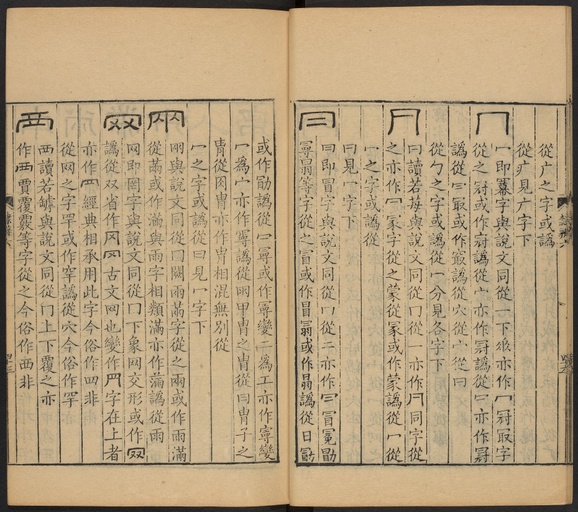 從广之字或譌
從疒見广字下
冖
冖即幕字與說文同從一下垂亦作冂冠冣字
從之冠或作冠譌從宀亦作冠譌從彐亦作冠
譌從曰取或作最譌從穴從宀從曰
從勹之字或譌從冖分見各字下
冃
曰讀若母與說文同從冂從二亦作冃同字從
之亦作冖冡字從之蒙從冡或作蒙譌從冖從
一之字或譌從
曰見一字下
冃
曰即冒字與說文同從冂從二亦作曰冒冕勖
冣冐等字從之冒或作冒冐或作曷譌從日勖
或作勖譌從冖寧或作寧變二爲工亦作寧變
一爲宀亦作寧譌從冊甲冑之冑從曰冑子之
冑從肉冑亦作冑相混無別從
冖之字或譌從曰見一字下
㒳
㒳與說文同從冂闕兩滿字從之兩或作兩滿
從㒼或作滿與雨字相類滿亦作滿譌從雨
网
网即罔字與說文同從冂下象网交形或作网
譌從双省作冈罓古文网也變作罒字在上者
亦作罒經典相承用此字今俗作四非
從网之字罕或作窂譌從穴今俗作罕
襾
襾讀若罅與說文同從冂上下覆之亦
作襾賈覆覈等字從之今俗作西非